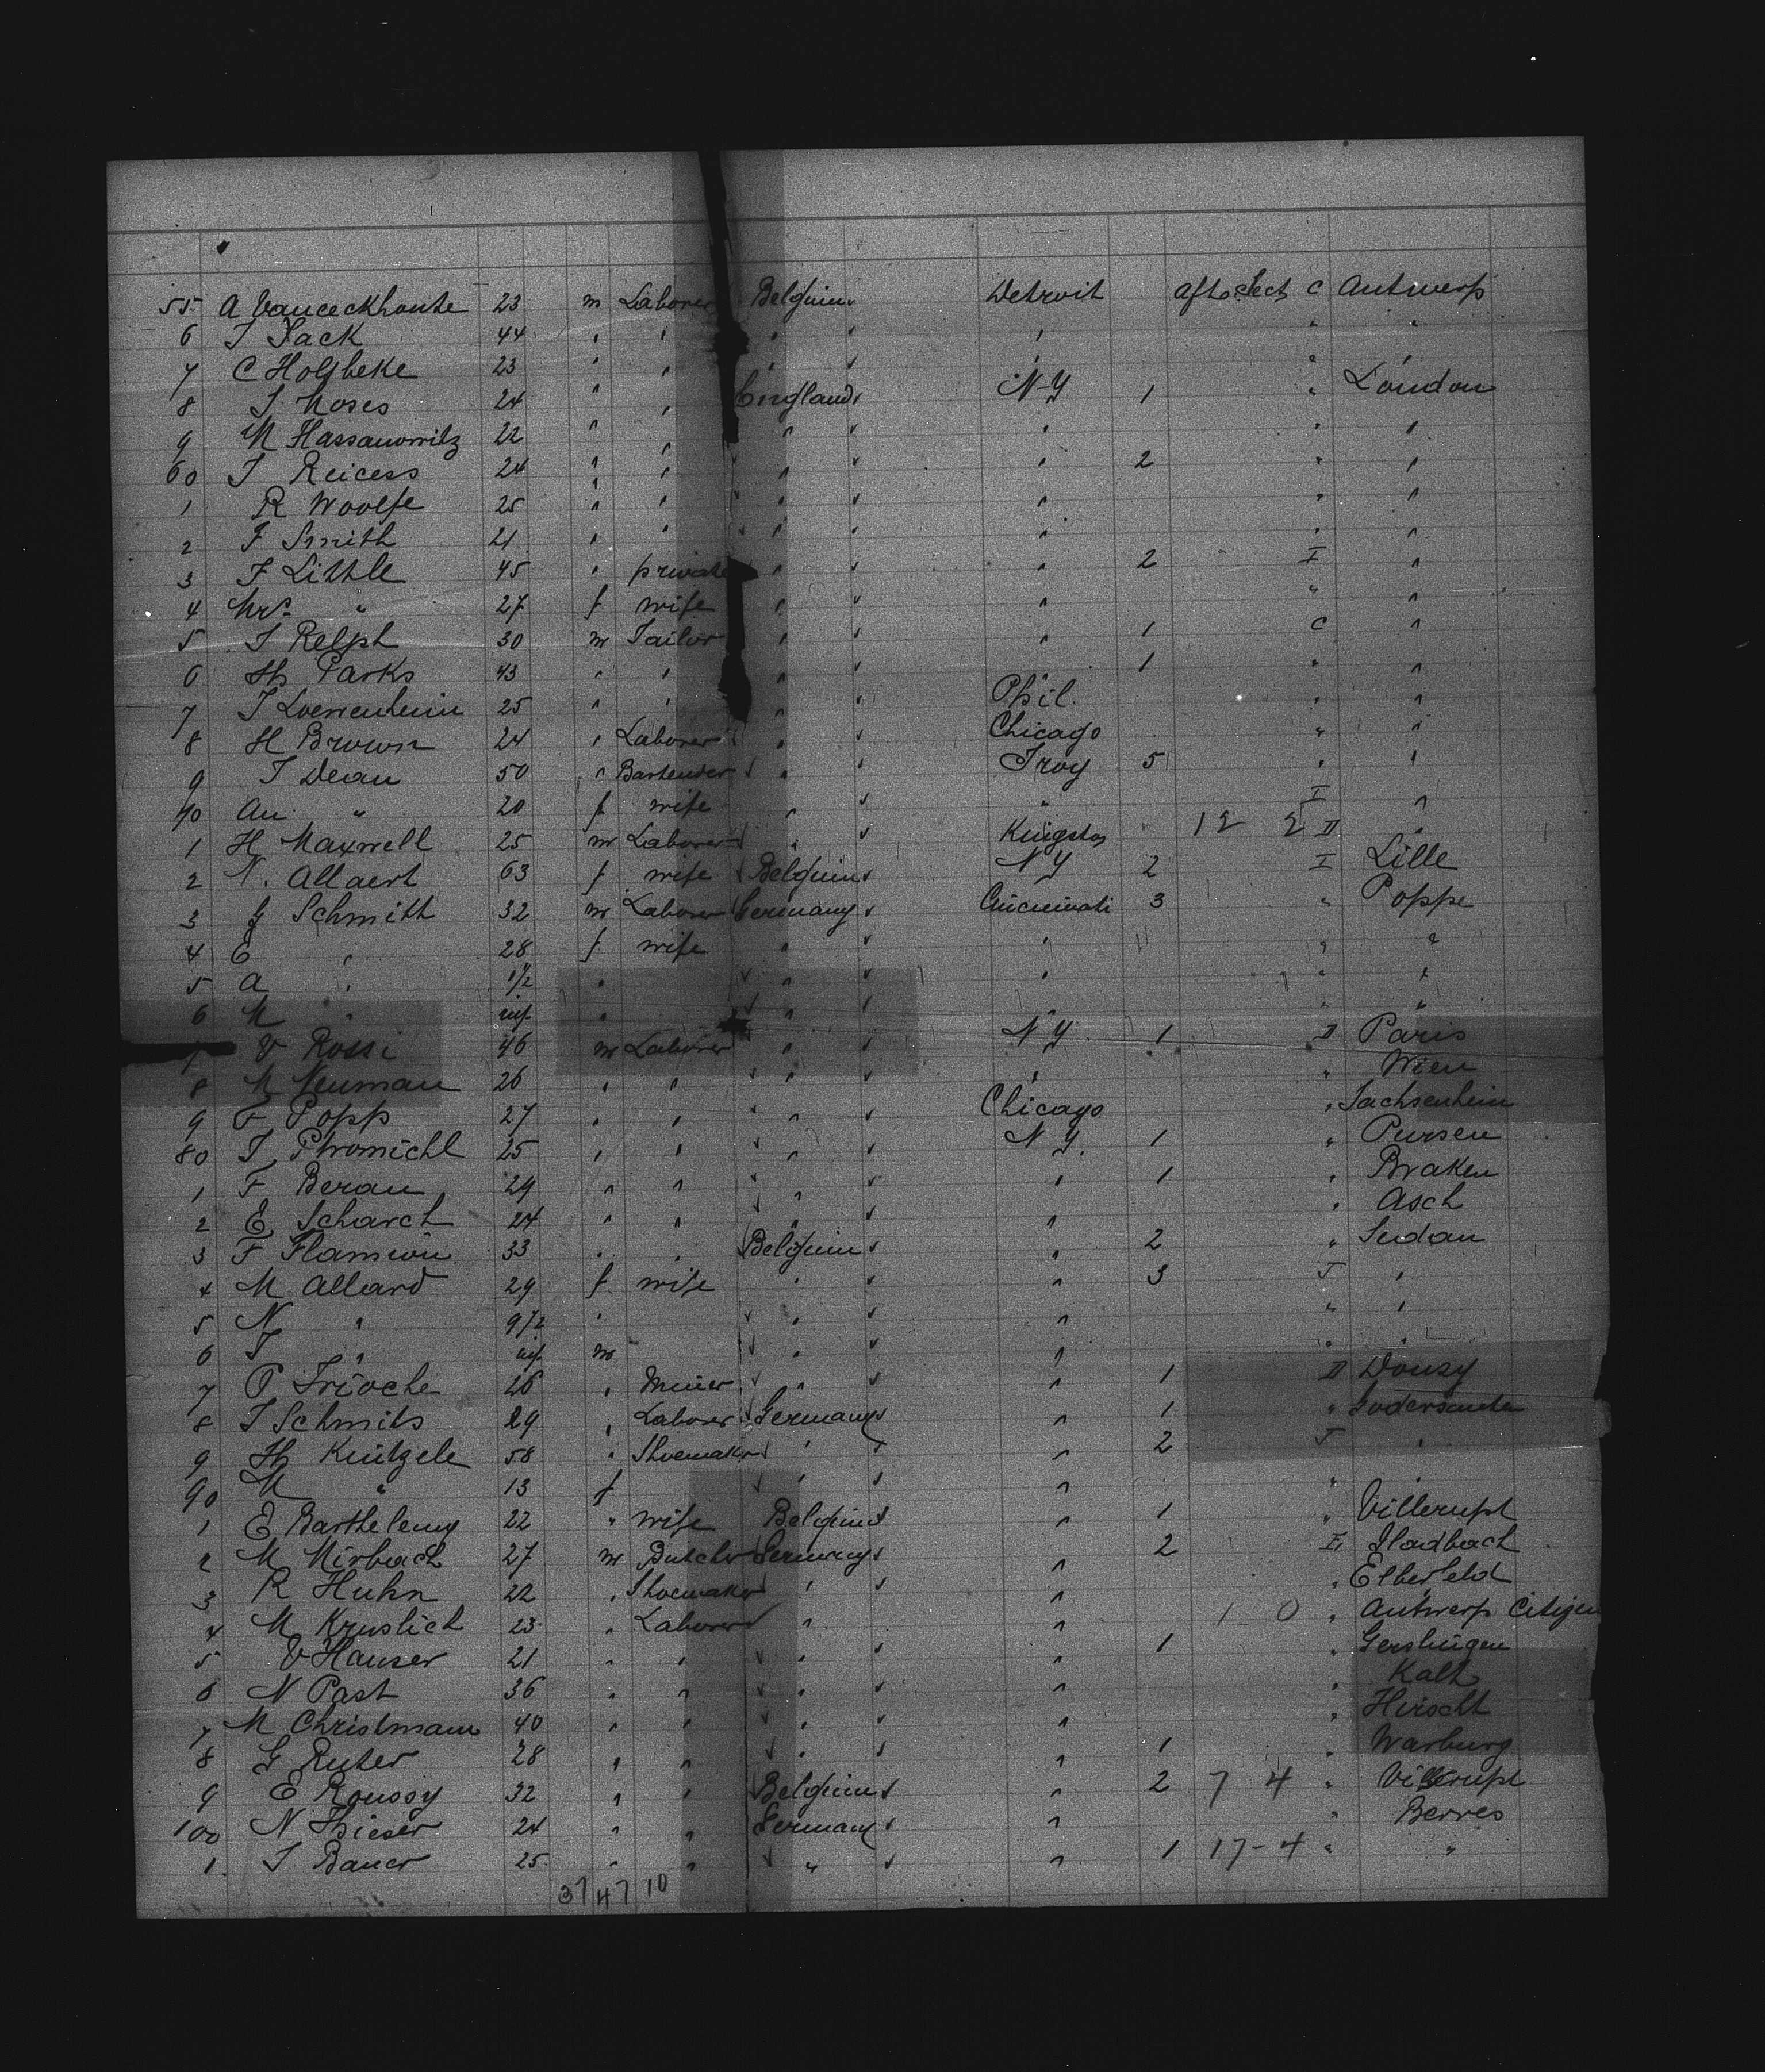 55 A Vanceckhoute 23 m Laborer Belgium Detroit aft sect C Antwerp
6 J Sack 44 " " " " " "
7 C Holsbeke 23 " " " " "
8 J Moses 24 " " England N-Y 1 " London
9 M Hassanowitz 22 " " " " " "
60 J Reicess 24 " " " " 2 " "
1 R Woolfe 25 " " " " " "
2 F Smith 21 " " " " " "
3 F Little 45 " private " " 2 I "
4 Mrs " 27 f wife " " " "
5 J Relph 30 m Tailor " " 1 C "
6 Th Parks 43 " " " 1 " "
7 J Loewenheim 25 " " " Phil. " "
8 H Brown 24 " Laborer " Chicago " "
9 J Dean 50 " Bartender " Troy 5 " "
70 An " 20 f wife " " I "
1 H Maxwell 25 m Laborer " Kingston 12 2 II "
2 N. Allaert 63 f wife Belgium N Y 2 I Lille
3 G Schmitt 32 m Laborer Germany Cincinnati 3 " Poppe
4 E " 28 f wife " " " "
5 A " 1 1/2 " " " " "
6 M " inf. " " " "
7 V Rossi 46 m Laborer " N Y. 1 II Paris
8 M Neuman 26 " " " " " Wien
9 F Popp 27 " " " Chicago " Sachsenheim
80 J Ptromichl 25 " " " N Y. 1 " Pursen
1 F Beran 29 " " " " 1 " Braken
2 E Scharch 24 " " " " " Asch
3 F Flamion 33 " " Belgium " 2 " Sedan
4 M Allard 29 f wife " " 3 I "
5 N " 9 1/2 " " " " "
6 J " inf. m " " " "
7 P Trioche 26 " Miner " " 1 II Douzy
8 J Schmits 29 " Laborer Germany " 1 "
9 Th Kintzele 58 " Shoemaker " " 2 I "
90 M " 13 f " " " "
1 E Barthelemy 22 " wife Belgium " 1 " Villerupt
2 M Mirbach 27 m Butcher Germany " 2 II Gladbach
3 R Huhn 22 " Shoemaker " " " Elberfeld
4 M Kruslich 23 " Laborer " " 1 0 " Antwerp Citizen
5 V Hauser 21 " " " " 1 " Gerslingen
6 N Past 36 " " " " " Kalt
7 M Christmann 40 " " " " " Hirscht
8 G Ruter 28 " " " " 1 " Warburg
9 E Roussy 32 " " Belgium " 2 7 4 " Villerupt
100 N Thieser 24 " " Germany " " Berres
1. J Bauer 25 " " " " 1 17-4 " "
37 47 10